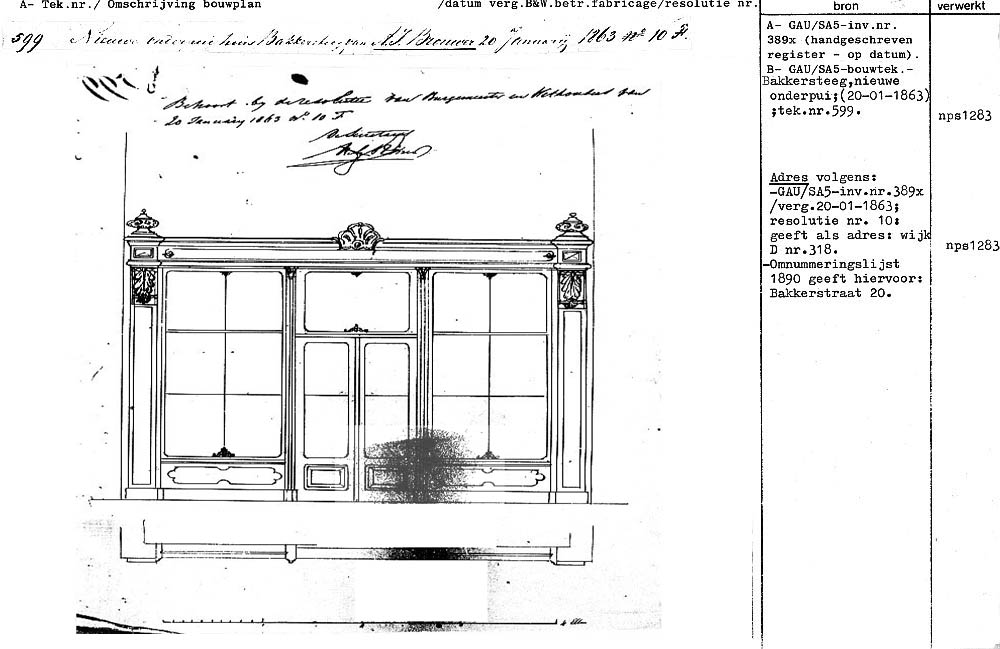 A- Tek.nr./ Omschrijving bouwplan /datum verg.B&W.betr.fabricage/resolutie nr.
bron
verwerkt
599 Nieuwe onderpui huis Bakkersteeg van A.J. Brouwer 20 Januarij 1863 no 10 F.
Behoort bij de resolutie van Burgemeester en Wethouders van
20 Januarij 1863 no. 10 F
De Secretaris
A- GAU/SA5-inv.nr.
389x (handgeschreven
register - op datum).
B- GAU/SA5-bouwtek.-
Bakkersteeg,nieuwe
onderpui;(20-01-1863)
;tek.nr.599.
nps1283
Adres volgens:
-GAU/SA5-inv.nr.389x
/verg.20-01-1863;
resolutie nr. 10:
geeft als adres: wijk
D nr.318.
nps1283
-Omnummeringslijst
1890 geeft hiervoor:
Bakkerstraat 20.
4 Ellen